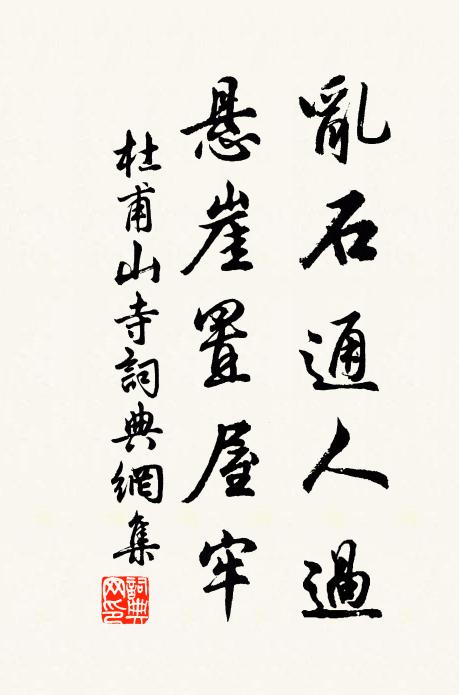 亂石通人過
懸崖置屋牢
杜甫山寺詞典網集
詞典网印